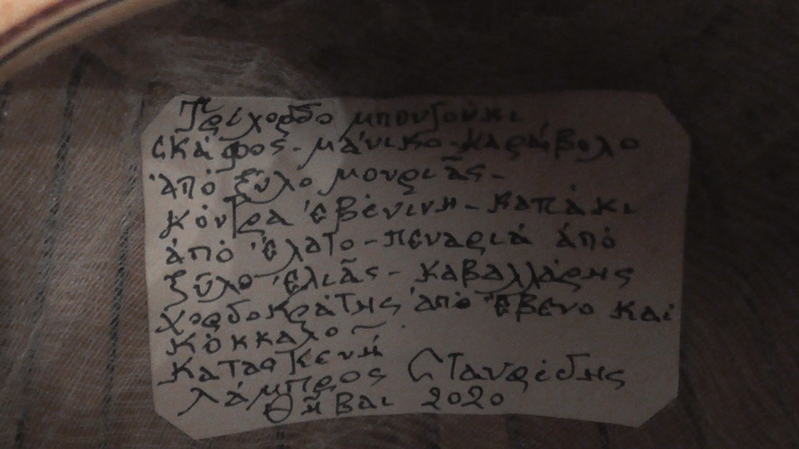 Τρίχορδο μπουζούκι
Σκάφος - μάνικο - καράβολο
ἀπό ξύλο μουριᾶς -
κόντρα ἐβένινη - καπάκι
ἀπό ἔλατο - πεναριά ἀπό
ξύλο ἐλιᾶς - καβαλλάρης
χορδοκράτης ἀπό ἔβενο καί
κόκκαλο ~
κατασκευή
Λάμπρος Σταυρίδης
Θῆβαι 2020